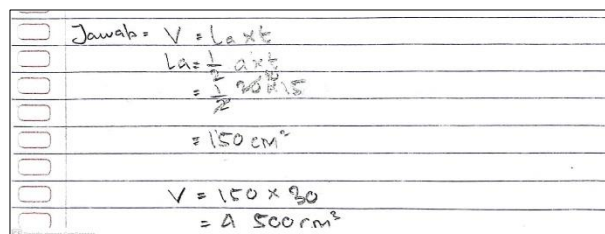 Jawab = V = La x t
La = 1/2 a x t
= 1/2 20 x 15
= 150 cm²
V = 150 x 30
= 4 500 cm³